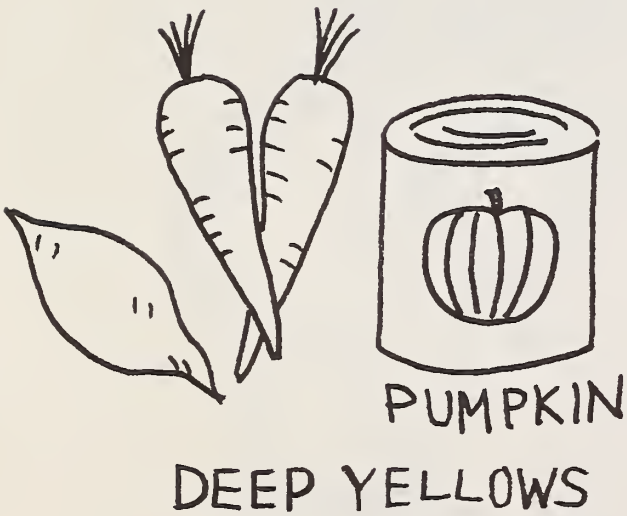 PUMPKIN
DEEP YELLOWS